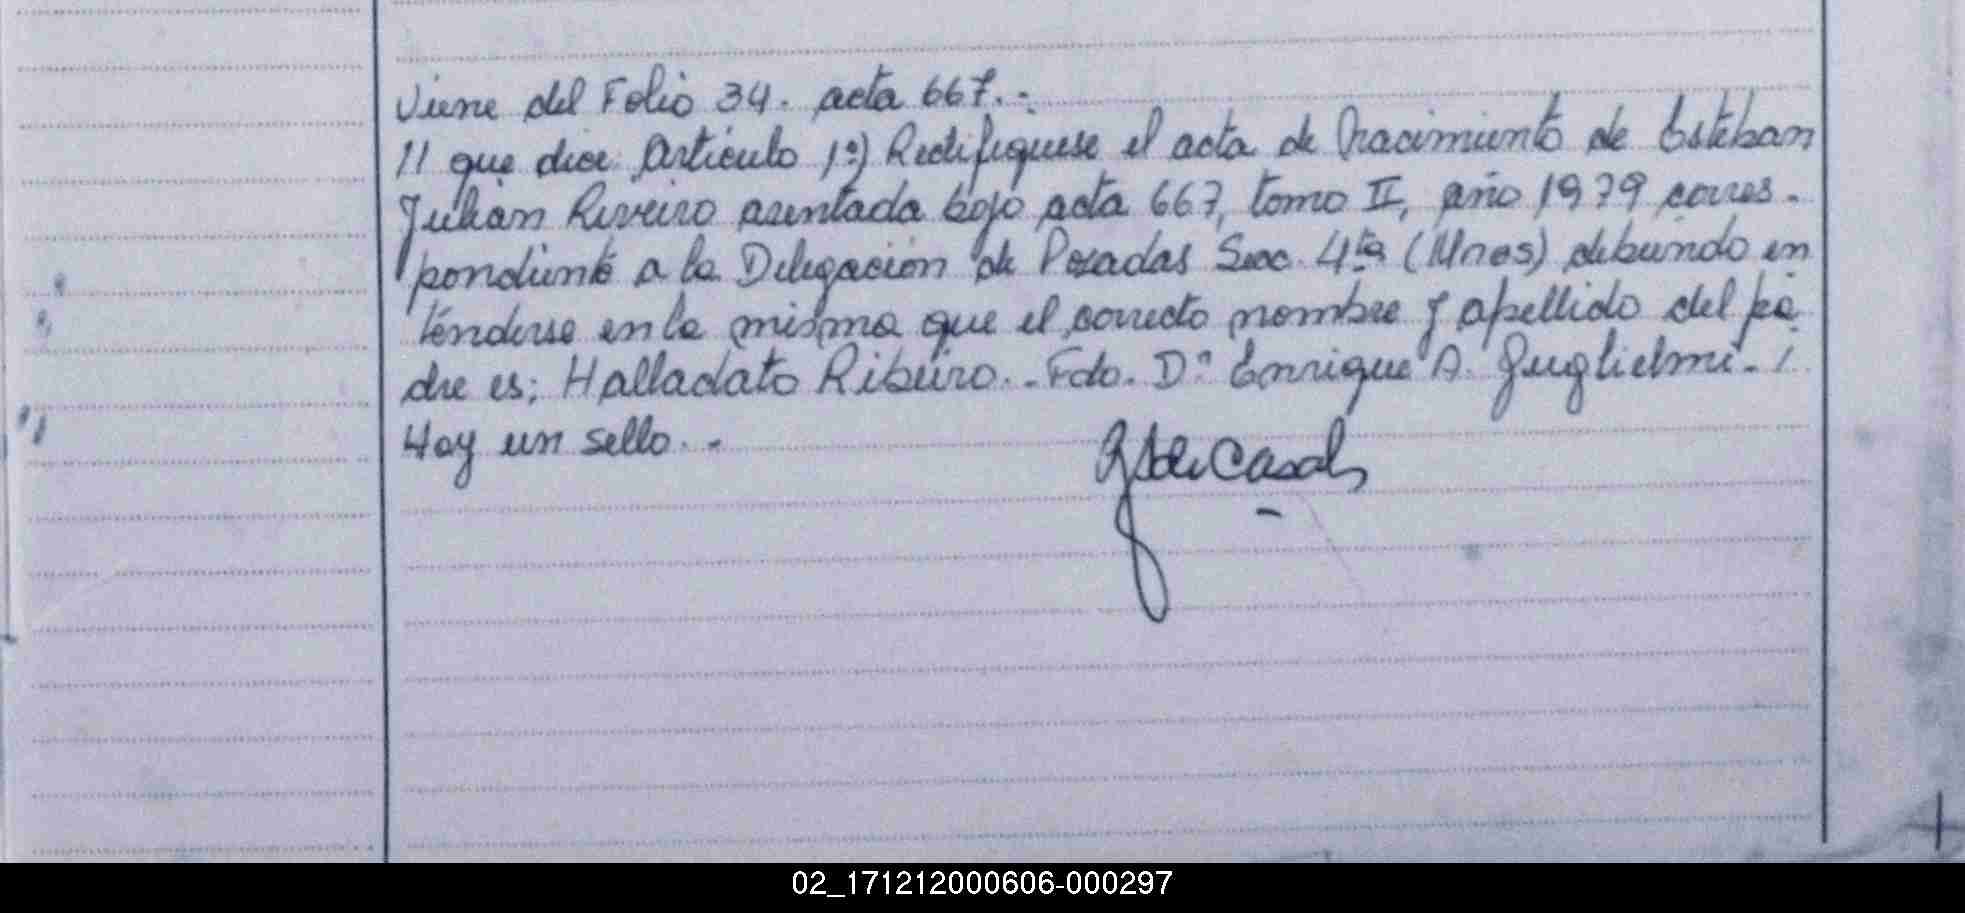 Viene del Folio 34. acta 667.-
// que dice: Artículo 1º) Rectifíquese el acta de Nacimiento de Esteban
Julián Riveiro asentada bajo acta 667, tomo II, año 1979 corres-
pondiente a la Delegación de Posadas Secc. 4ta (Mnes) debiendo en
tenderse en la misma que el correcto nombre y apellido del pa
dre es; Halladato Ribeiro.- Fdo. Dº Enrique A. Guglielmi.- /
Hay un sello.-
de Casals
02_171212000606-000297